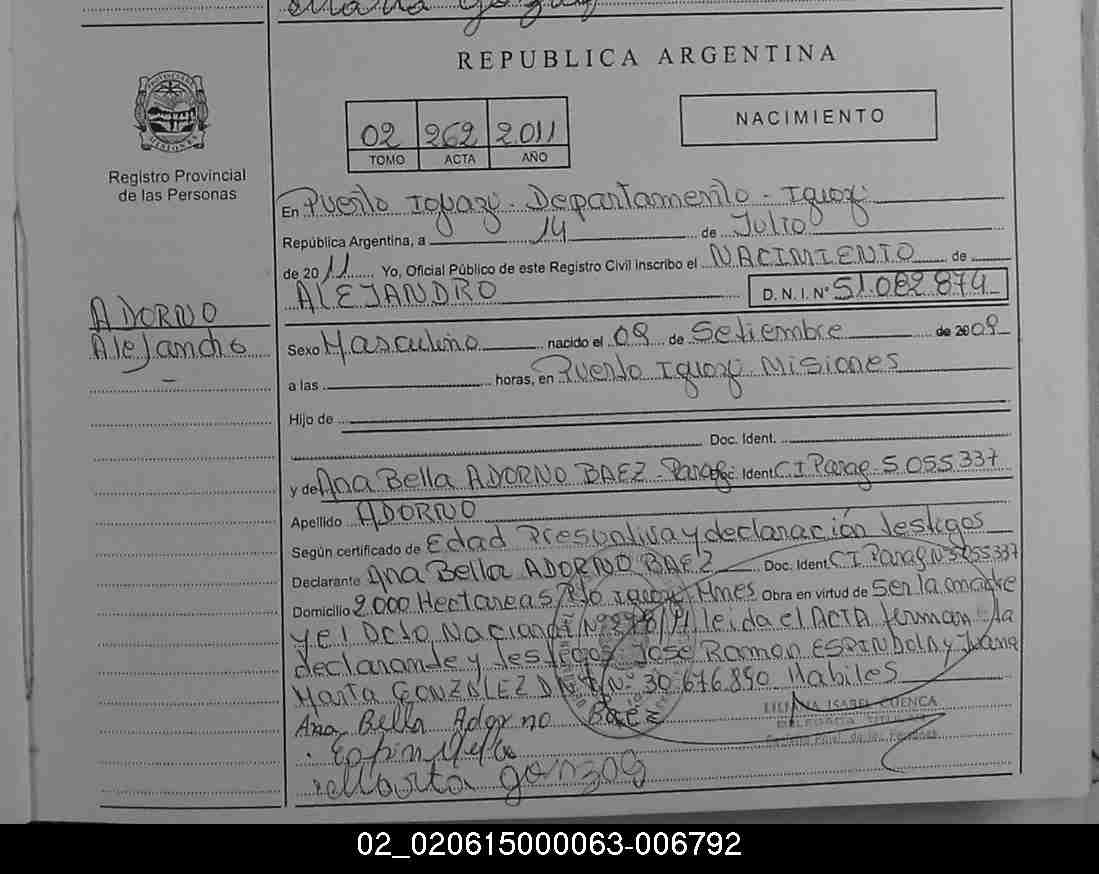 Maria
REPUBLICA ARGENTINA
02 262 2011
TOMO ACTA AÑO
NACIMIENTO
Registro Provincial
de las Personas
En Puerto Iguazú - Departamento - Iguazú
República Argentina, a 14 de Julio
de 2011 Yo, Oficial Público de este Registro Civil inscribo el NACIMIENTO de
ALEJANDRO D.N.I. Nº 51.082.874
ADORNO
Alejandro
Sexo Masculino nacido el 09 de Setiembre de 2009
a las horas, en Puerto Iguazú Misiones
Hijo de
Doc. Ident.
y de Ana Bella ADORNO BAEZ - Parag Doc. Ident. CI Parag. 5.055.337
Apellido ADORNO
Según certificado de Edad Presuntiva y declaración testigos
Declarante Ana Bella ADORNO BAEZ Doc. Ident. CI Parag Nº 5.055.337
Domicilio 2.000 Hectareas Pto Iguazú Mnes Obra en virtud de Ser la madre
y el Dcto Nacional Nº leida el ACTA firman la
declarante y testigos José Ramon ESPINDOLA y Juana
Marta GONZALEZ DNI Nº 30.676.890 Habiles
Ana Bella Adorno Baez
LILIANA ISABEL CUENCA
DELEGADA TITULAR
Registro Prov. de las Personas
Espindola
Marta
02_020615000063-006792